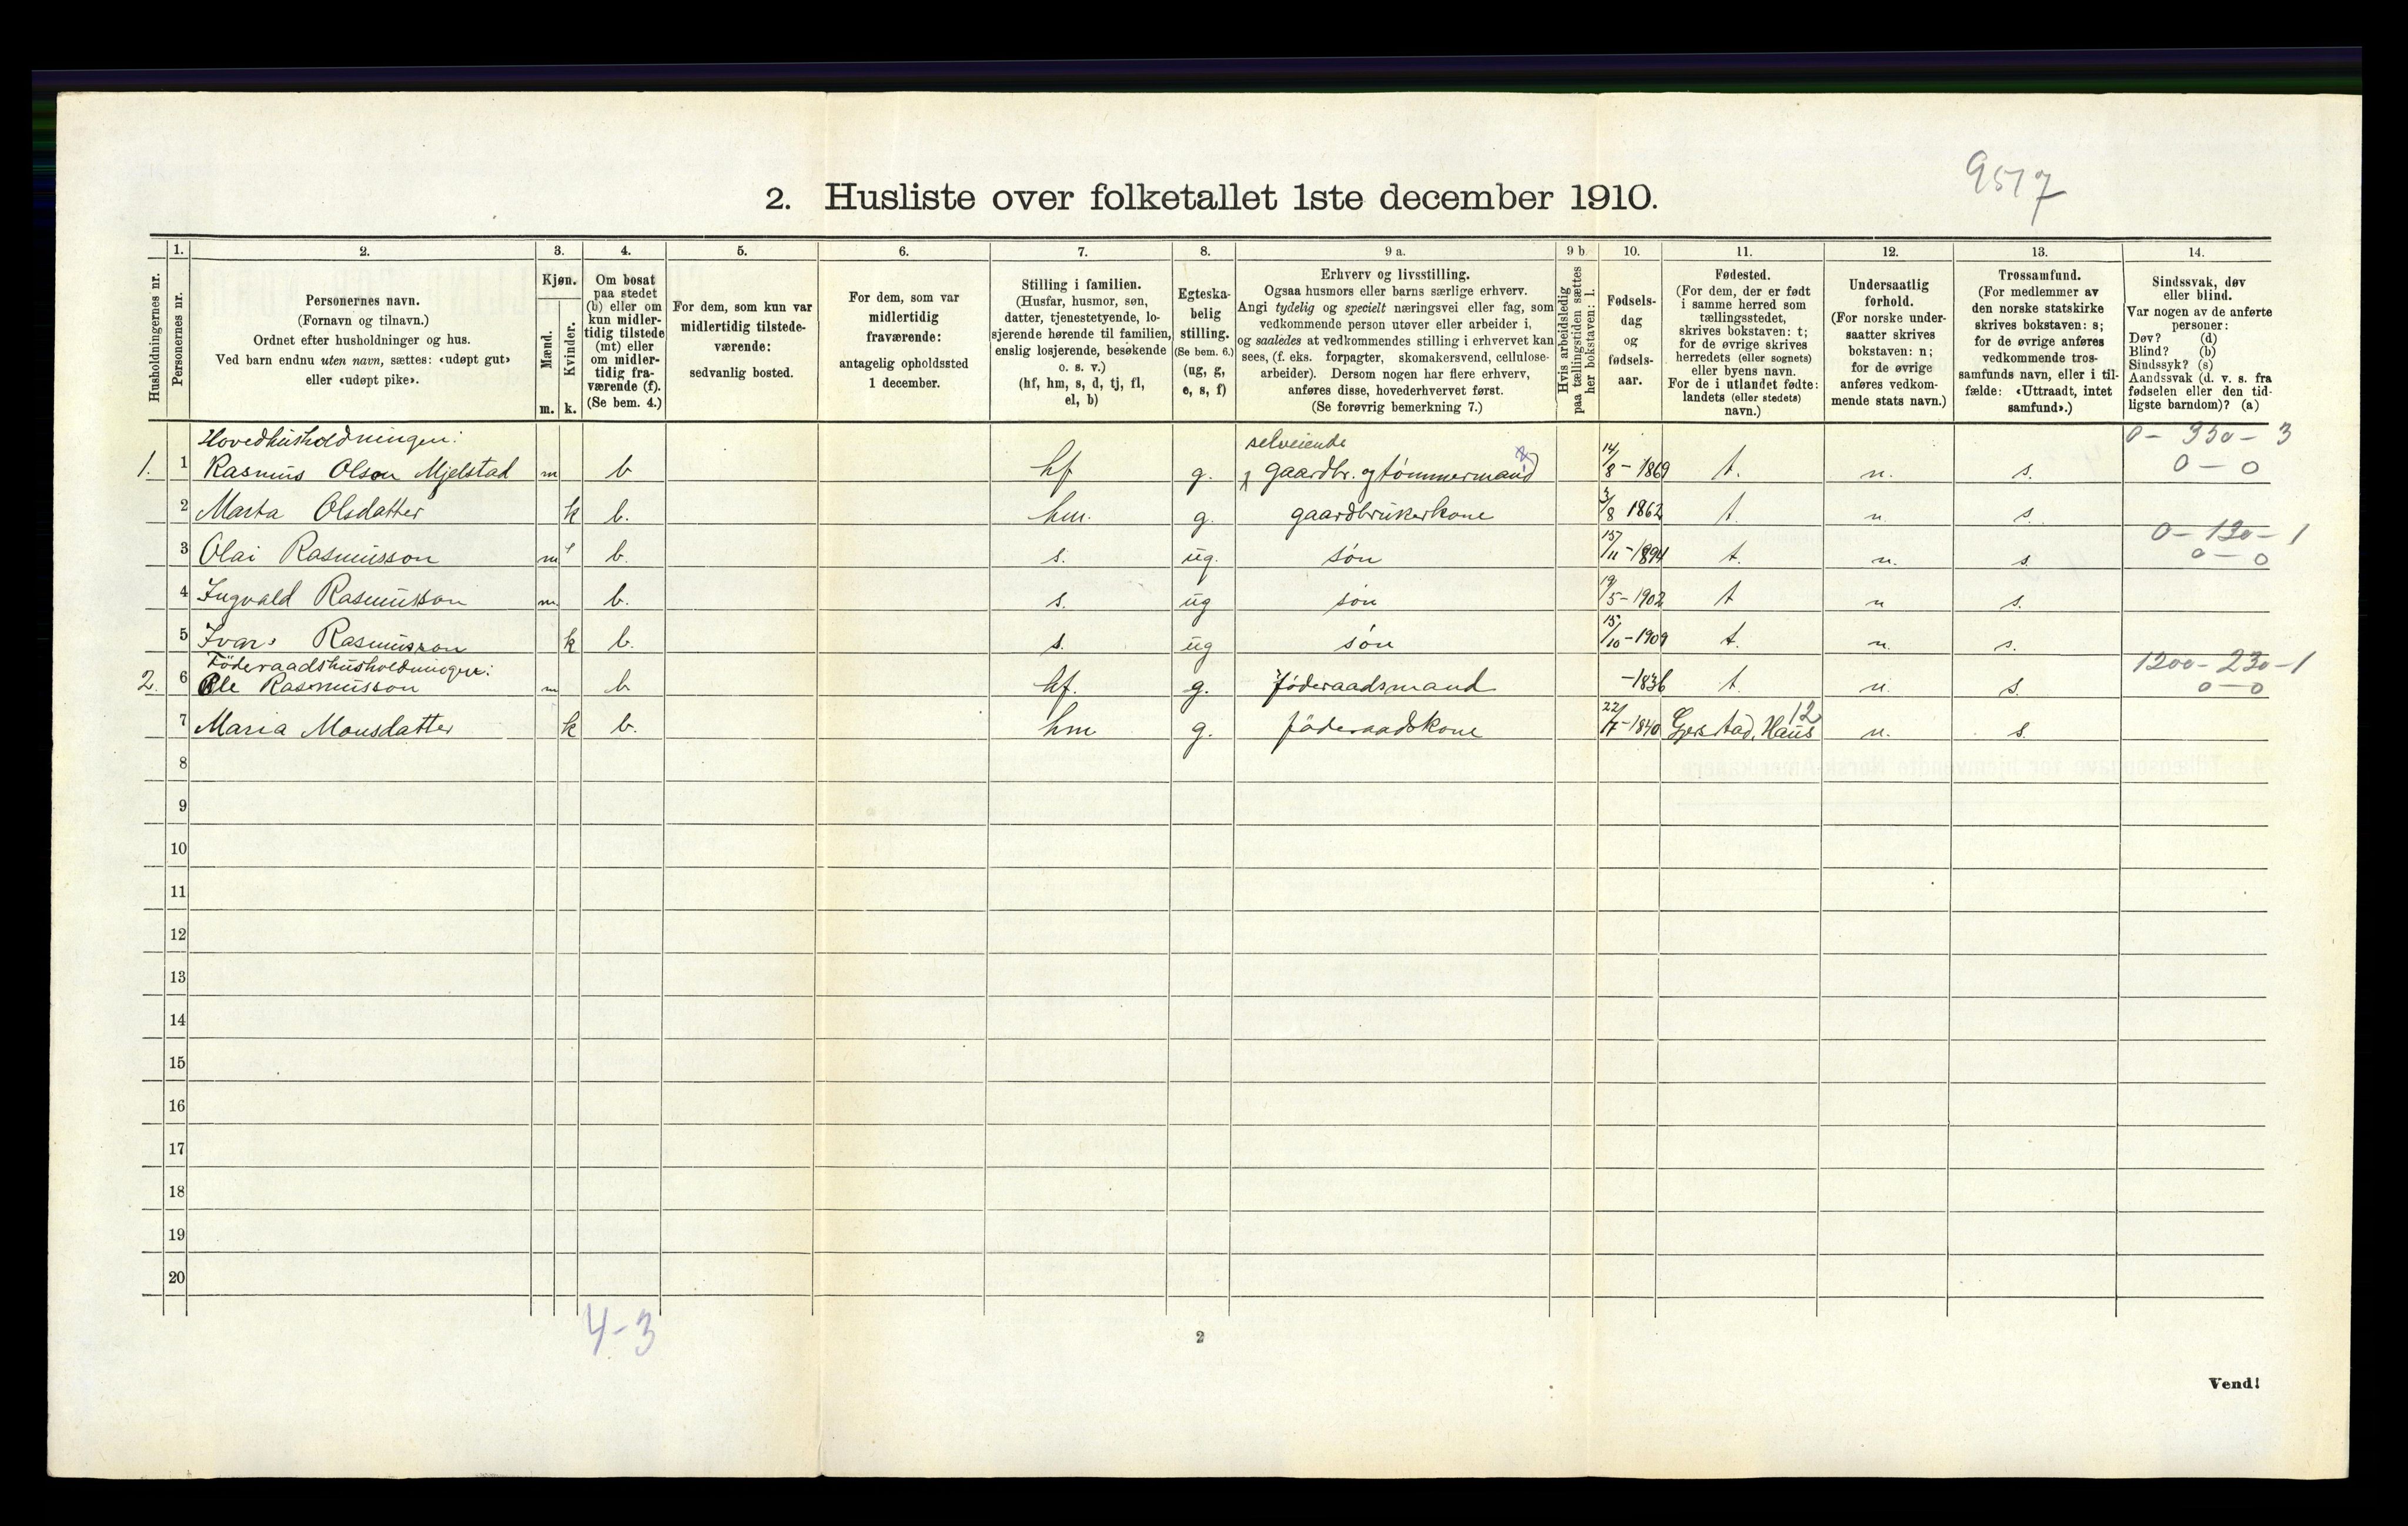 9517
2. Husliste over folketallet 1ste december 1910.
Husholdningernes nr.
1. Personernes nr.
2. Personernes navn. (Fornavn og tilnavn.) Ordnet efter husholdninger og hus. Ved barn endnu uten navn, sættes: «udøpt gut» eller «udøpt pike».
3. Kjøn. Mænd. m. Kvinder. k.
4. Om bosat paa stedet (b) eller om kun midlertidig tilstede (mt) eller om midlertidig fraværende (f). (Se bem. 4.)
5. For dem, som kun var midlertidig tilstedeværende: sedvanlig bosted.
6. For dem, som var midlertidig fraværende: antagelig opholdssted 1 december.
7. Stilling i familien. (Husfar, husmor, søn, datter, tjenestetyende, losjerende hørende til familien, enslig losjerende, besøkende o. s. v.) (hf, hm, s, d, tj, fl, el, b)
8. Egteskabelig stilling. (Se bem. 6.) (ug, g, e, s, f)
9 a. Erhverv og livsstilling. Ogsaa husmors eller barns særlige erhverv. Angi tydelig og specielt næringsvei eller fag, som vedkommende person utøver eller arbeider i, og saaledes at vedkommendes stilling i erhvervet kan sees, (f. eks. forpagter, skomakersvend, cellulosearbeider). Dersom nogen har flere erhverv, anføres disse, hovederhvervet først. (Se forøvrig bemerkning 7.)
9 b. Hvis arbeidsledig paa tællingstiden sættes her bokstaven: l.
10. Fødselsdag og fødselsaar.
11. Fødested. (For dem, der er født i samme herred som tællingsstedet, skrives bokstaven: t; for de øvrige skrives herredets (eller sognets) eller byens navn. For de i utlandet fødte: landets (eller stedets) navn.)
12. Undersaatlig forhold. (For norske undersaatter skrives bokstaven: n; for de øvrige anføres vedkommende stats navn.)
13. Trossamfund. (For medlemmer av den norske statskirke skrives bokstaven: s; for de øvrige anføres vedkommende trossamfunds navn, eller i tilfælde: «Uttraadt, intet samfund».)
14. Sindssvak, døv eller blind. Var nogen av de anførte personer: Døv? (d) Blind? (b) Sindssyk? (s) Aandssvak (d. v. s. fra fødselen eller den tidligste barndom)? (a)
Hovedhusholdningen: selveiende 0 - 350 - 3
1. 1 Rasmus Olson Mjelstad m b hf g. gaardbr. og tømmermand 14/8 - 1869 t. n. s. 0 - 0
2 Marta Olsdatter k b. hm. g. gaardbrukerkone 3/8 1862 t. n s.
0 - 120 - 1
3 Olai Rasmusson m b. s. ug. søn 15/11 - 1894 t. n. s. 0 - 0
4 Ingvald Rasmusson m. b. s. ug søn 19/5 - 1902 t n s.
5 Ivar Rasmusson k b. s. ug søn 15/10 - 1909 t. n. s.
Föderaadshusholdningen: 1200 - 230 - 1
2. 6 Ole Rasmusson m b hf. g. föderaadsmand - 1836 t. n. s. 0 - 0
7 Maria Monsdatter k b. hm g. föderaadskone 22/7 - 1840 Gjerstad, Haus 12 n. s.
8
9
10
11
12
13
14
15
16
17
18
19
20
4 - 3
2
Vend!